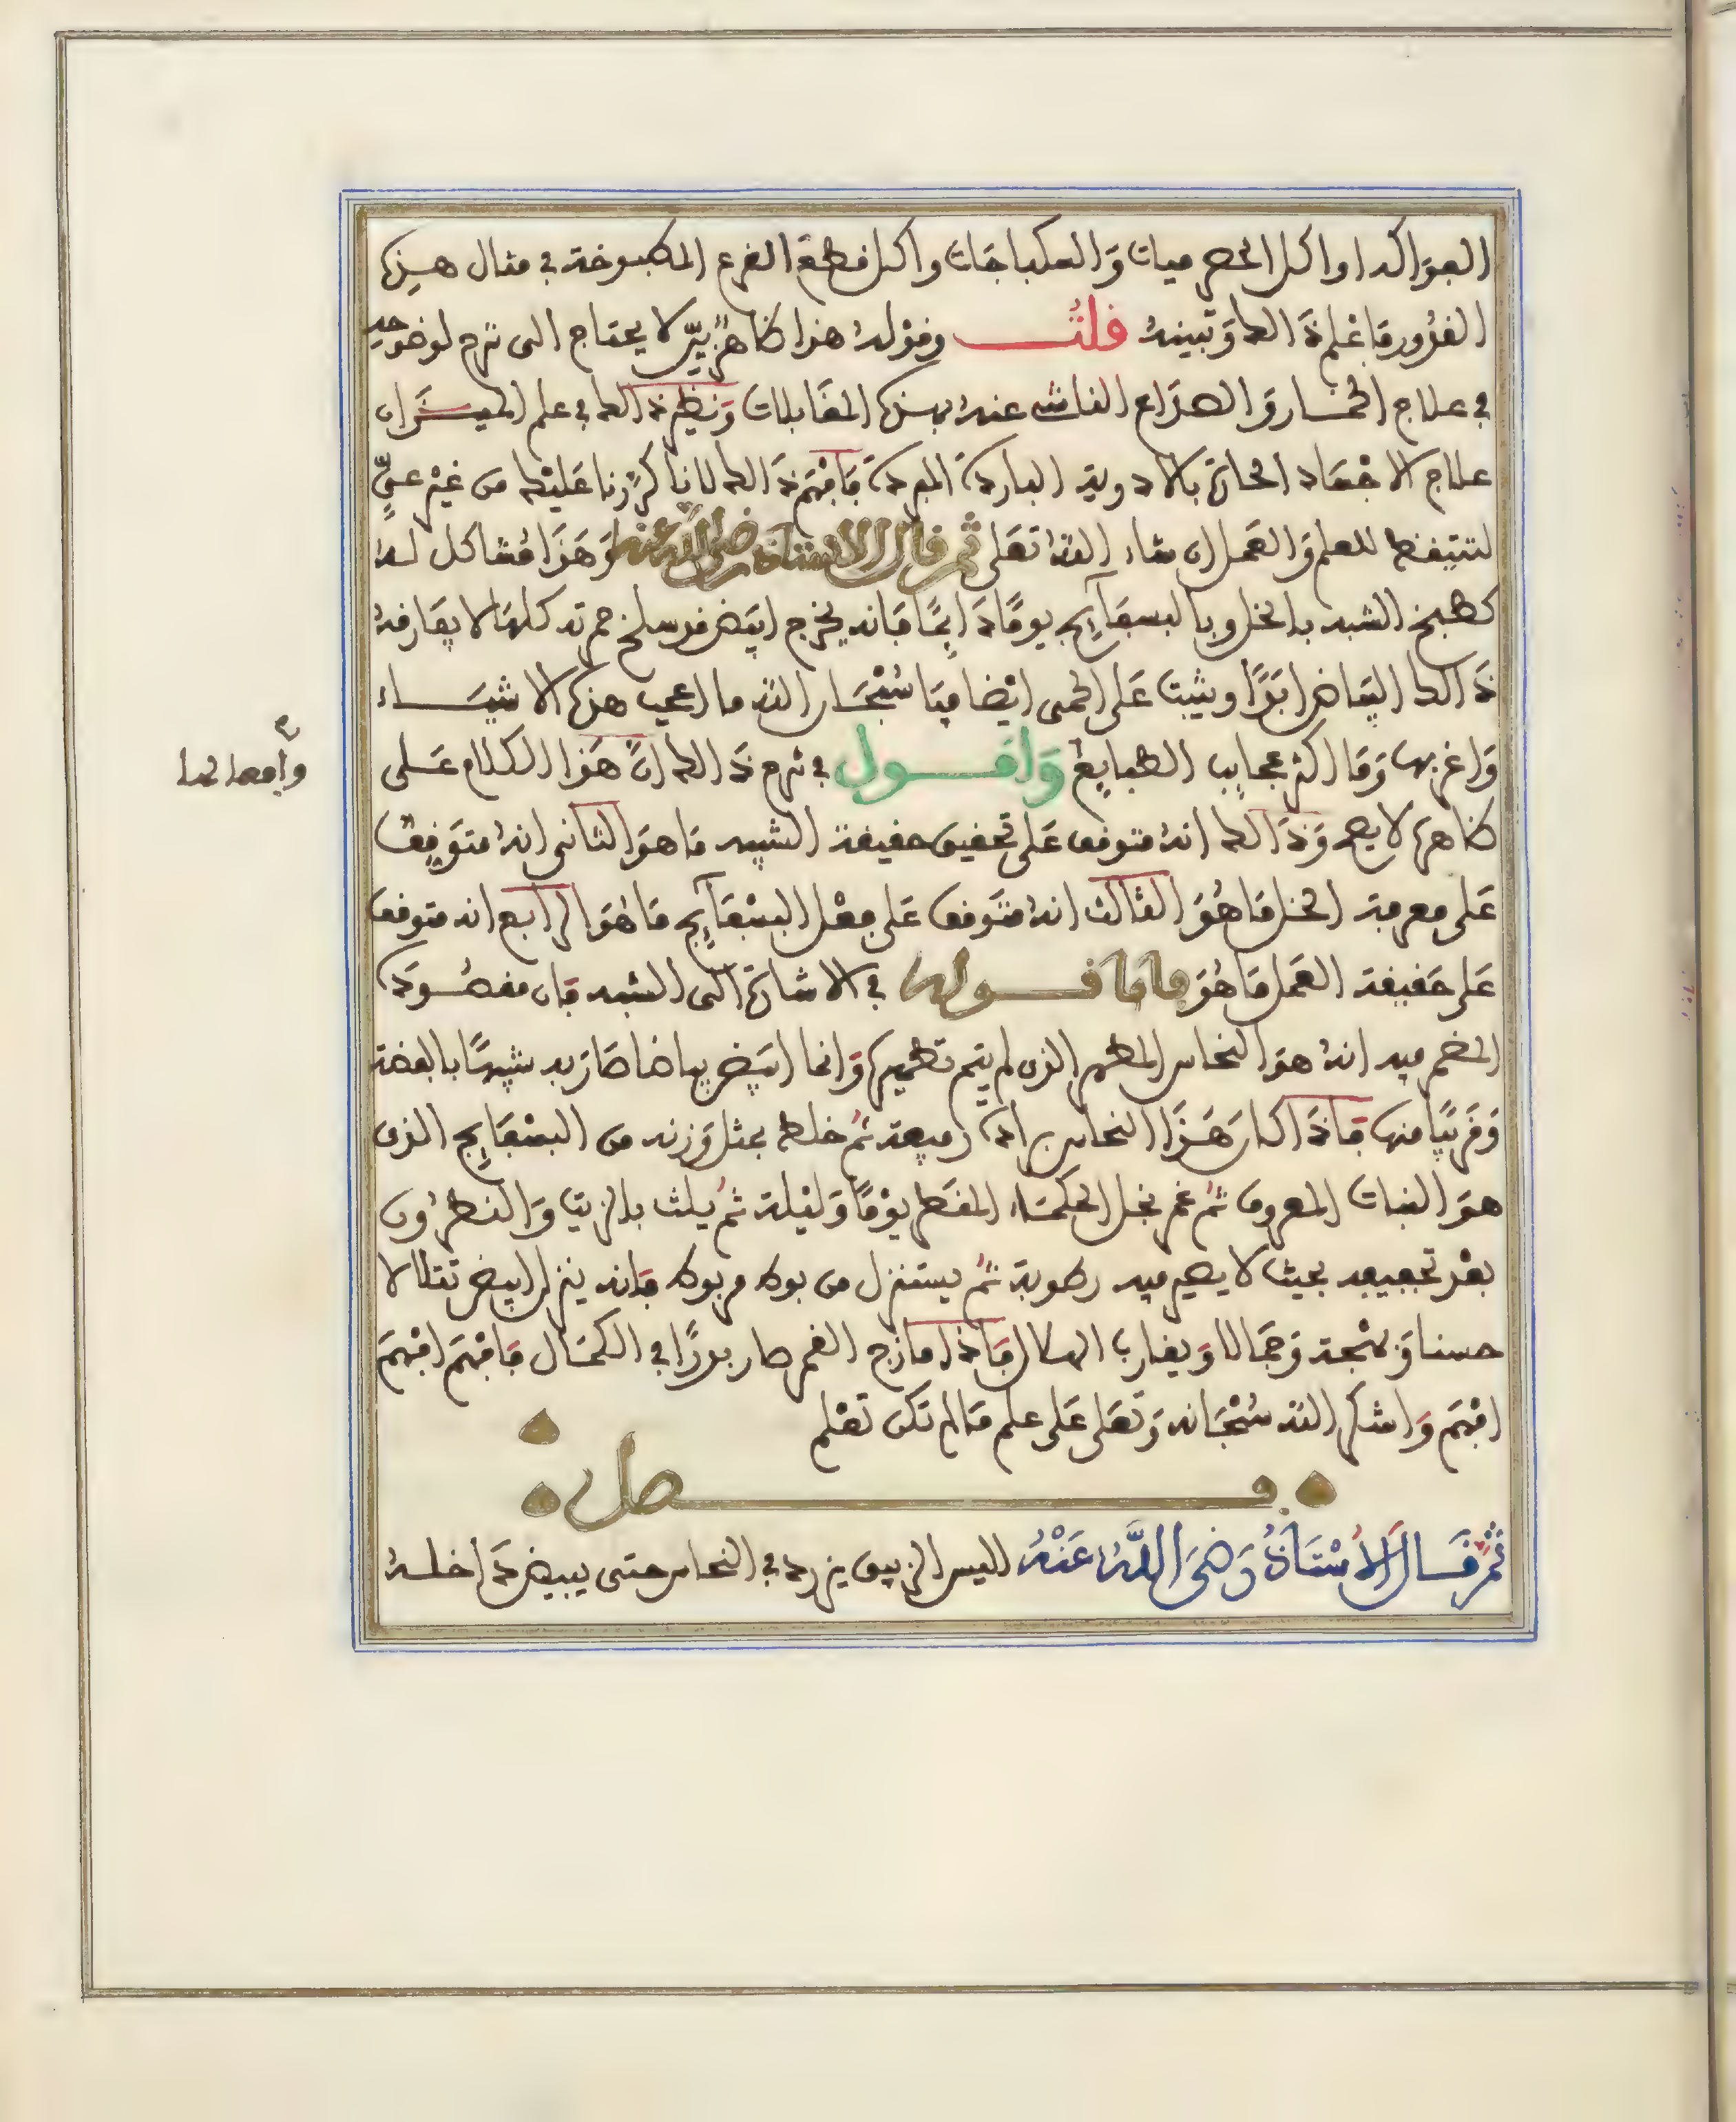 الفواكه او اكل الحصرميات وَالسكباجَات واكل قطع القرع المطبوخة في مثال هذه
القدُور فاعْلم ذَالك وَتبينهُ قلتُ وقوْلهُ هذا ظاهرٌ بيّن لا يحتاج الى شرح لوضوحه
في علاج الخمار وَالصدَاع الناشى عنهُ بهذه المقَابلات وَنظير ذالك في علم الميزَان
علاج الاجْسَاد الحارة بالادوية الباردَة المبردة فَافهَم ذَالك لانا كرّرنا عَليْك من غيْر عىٍّ
لتتيقظ للعلم وَالعَمل ان شاء اللهُ تعَلى ثم قال الاستاذ رضى الله عنه وَهَذَا مُشاكل لهُ
كطبخ الشبه بالخل وبالبسفَايِج يومًا دَايمًا فانه يخرج ابيَض قد سلخ حمرته كلهَا لا يفَارقهُ
ذَالك البيَاض ابَدًا ويثبت عَلى الحمى ايْضا فيَا سُبْحَان الله ما اعجب هذه الاشيَاء
وَاغربها وَمَا اكثر عجايب الطبايعْ وَاقول في شرح ذَالك انَّ هَذَا الكلام عَلى
ظاهره لا يصح وَذَالك انهُ متوقف عَلى تحقيق حقيقة الشبه مَا هوَ الثانى انهُ متوَقِفٌ
عَلى معرفة الخل مَا هُوَ الثالث انهُ متَوقف عَلى فعْل البسْفَايِج مَا هُوَ الرابع انه متوقف
عَلى حَقيقة العَمل مَا هُوَ فامَا قوله في الاشارة الى الشبه فان مقصُوده
المضمر فيه انهُ هوَ النحاس المطهر الذى لم يتم تطهيره وَانما ابيَض بياضا صَار به شبيهًا بالفضة
وَقَريبًا منها فاذَا كان هَذَا النحاس برادة رفيعة ثُم خلط بمثل وَزنه من البسْفَايِج الذى
هوَ النبات المعروف ثُم غمر بخل الحكمَاء المقَطر يوْمًا وَليْلة ثُم يلث بالزيت وَالنطرُون
بعْد تجفيفه بحيث لا يصير فيه رطوبة ثُم يستنزل من بوط مربوط فَانه ينزل ابيض تتلالا
حسنا وَبهْجة وَجمَالا وَيقارب الهلال فَاذا مازج القمر صار بدرًا في الكمَال فَافْهَم افْهَم
افْهَم وَاشكر الله سُبْحَانه وَتعَلى عَلى علم مَا لم تكن تعْلم
فصل
ثُمَّ قَال الاسْتَاذُ رَضىَ اللَّهُ عَنْهُ اليس الزيبق يزرد في النحاس حتى يبيض دَاخلهُ